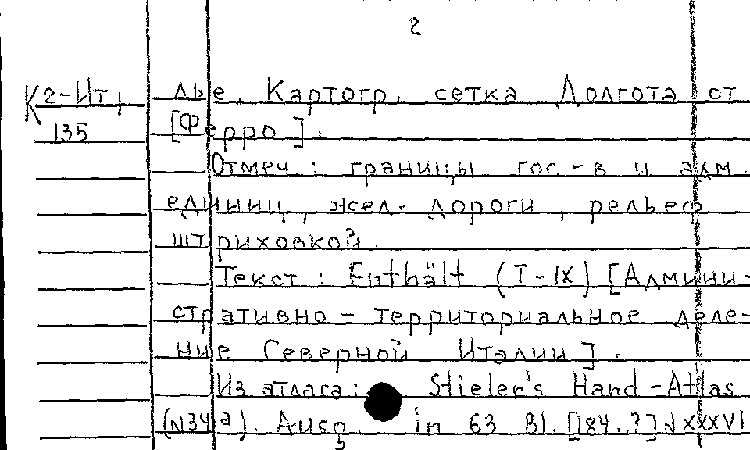 2
К2-Ит, лье. Картогр. сетка Долгота от
135 [Ферро].
Отмеч: границы гос-в и адм.
единиц, жел. дороги, рельеф
штриховкой.
Текст: Enthält (I-IX) [Админи-
стративно-территориальное деле-
ние Северной Италии].
Из атласа: Stieler's Hand-Atlas
(N34a). Ausg. in 63 Bl. [184.?] XXXVI